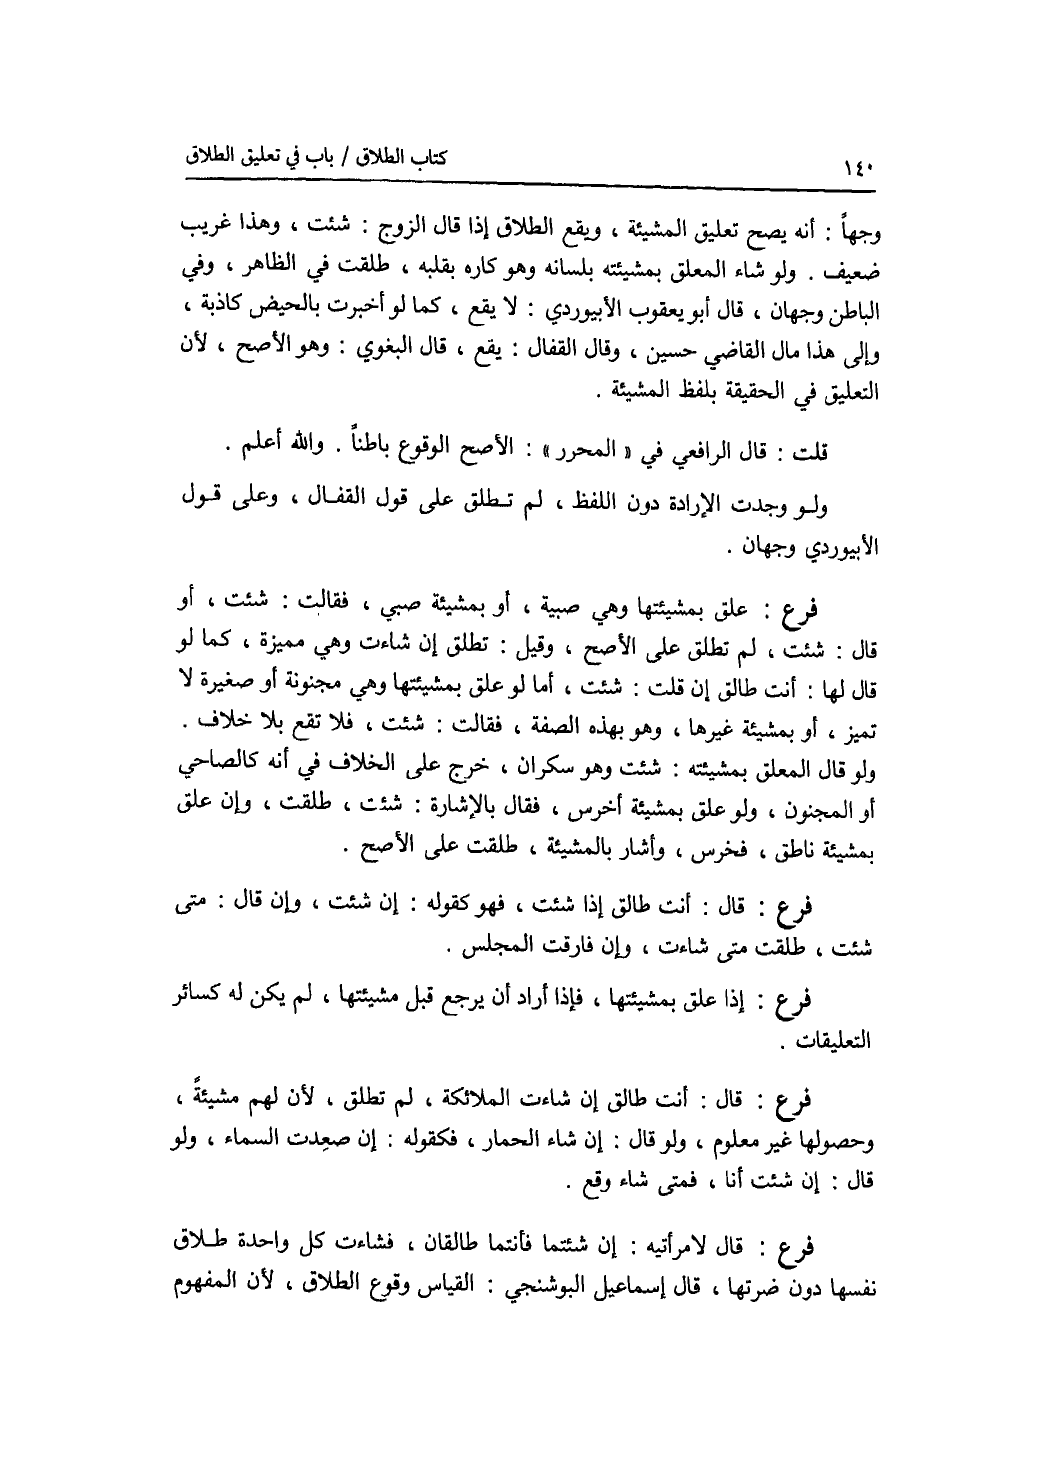 ١٤٠
كتاب الطلاق / باب في تعليق الطلاق
وجهاً : أنه يصح تعليق المشيئة ، ويقع الطلاق إذا قال الزوج : شئت ، وهذا غريب
ضعيف . ولو شاء المعلق بمشيئته بلسانه وهو كاره بقلبه ، طلقت في الظاهر ، وفي
الباطن وجهان ، قال أبو يعقوب الأبيوردي : لا يقع ، كما لو أخبرت بالحيض كاذبة ،
وإلى هذا مال القاضي حسين ، وقال القفال : يقع ، قال البغوي : وهو الأصح ، لأن
التعليق في الحقيقة بلفظ المشيئة .
قلت : قال الرافعي في « المحرر » : الأصح الوقوع باطناً . والله أعلم .
ولـو وجدت الإرادة دون اللفظ ، لم تـطلق على قول القفـال ، وعلى قـول
الأبيوردي وجهان .
فرع : علق بمشيئتها وهي صبية ، أو بمشيئة صبي ، فقالت : شئت ، أو
قال : شئت ، لم تطلق على الأصح ، وقيل : تطلق إن شاءت وهي مميزة ، كما لو
قال لها : أنت طالق إن قلت : شئت ، أما لو علق بمشيئتها وهي مجنونة أو صغيرة لا
تميز ، أو بمشيئة غيرها ، وهو بهذه الصفة ، فقالت : شئت ، فلا تقع بلا خلاف .
ولو قال المعلق بمشيئته : شئت وهو سكران ، خرج على الخلاف في أنه كالصاحي
أو المجنون ، ولو علق بمشيئة أخرس ، فقال بالإشارة : شئت ، طلقت ، وإن علق
بمشيئة ناطق ، فخرس ، وأشار بالمشيئة ، طلقت على الأصح .
فرع : قال : أنت طالق إذا شئت ، فهو كقوله : إن شئت ، وإن قال : متى
شئت ، طلقت متى شاءت ، وإن فارقت المجلس .
فرع : إذا علق بمشيئتها ، فإذا أراد أن يرجع قبل مشيئتها ، لم يكن له كسائر
التعليقات .
فرع : قال : أنت طالق إن شاءت الملائكة ، لم تطلق ، لأن لهم مشيئةً ،
وحصولها غير معلوم ، ولو قال : إن شاء الحمار ، فكقوله : إن صعِدت السماء ، ولو
قال : إن شئت أنا ، فمتى شاء وقع .
فرع : قال لامرأتيه : إن شئتما فأنتما طالقان ، فشاءت كل واحدة طـلاق
نفسها دون ضرتها ، قال إسماعيل البوشنجي : القياس وقوع الطلاق ، لأن المفهوم